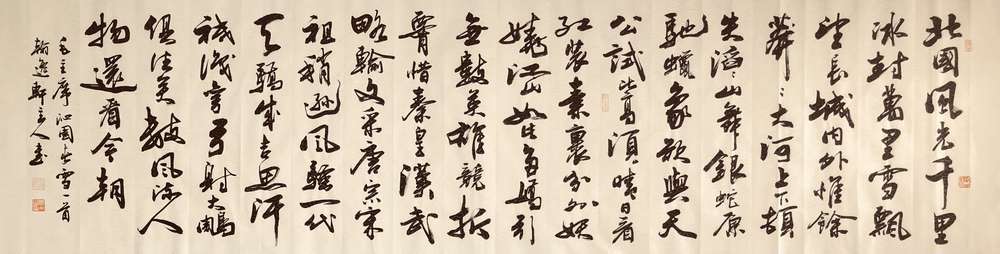 北國風光千里
冰封萬里雪飄
望長城内外惟餘
莽〻大河上下頓
失滔〻山舞銀蛇原
馳蠟象欲與天
公試比高須晴日看
紅裝素裹分外妖
嬈江山如此多嬌引
無數英雄競折
腰惜秦皇漢武
略輸文采唐宗宋
祖稍遜風騷一代
天驕成吉思汗
祇識彎弓射大鵰
俱往矣數風流人
物還看今朝
毛主席沁園春雪一首
翰逸軒主人書